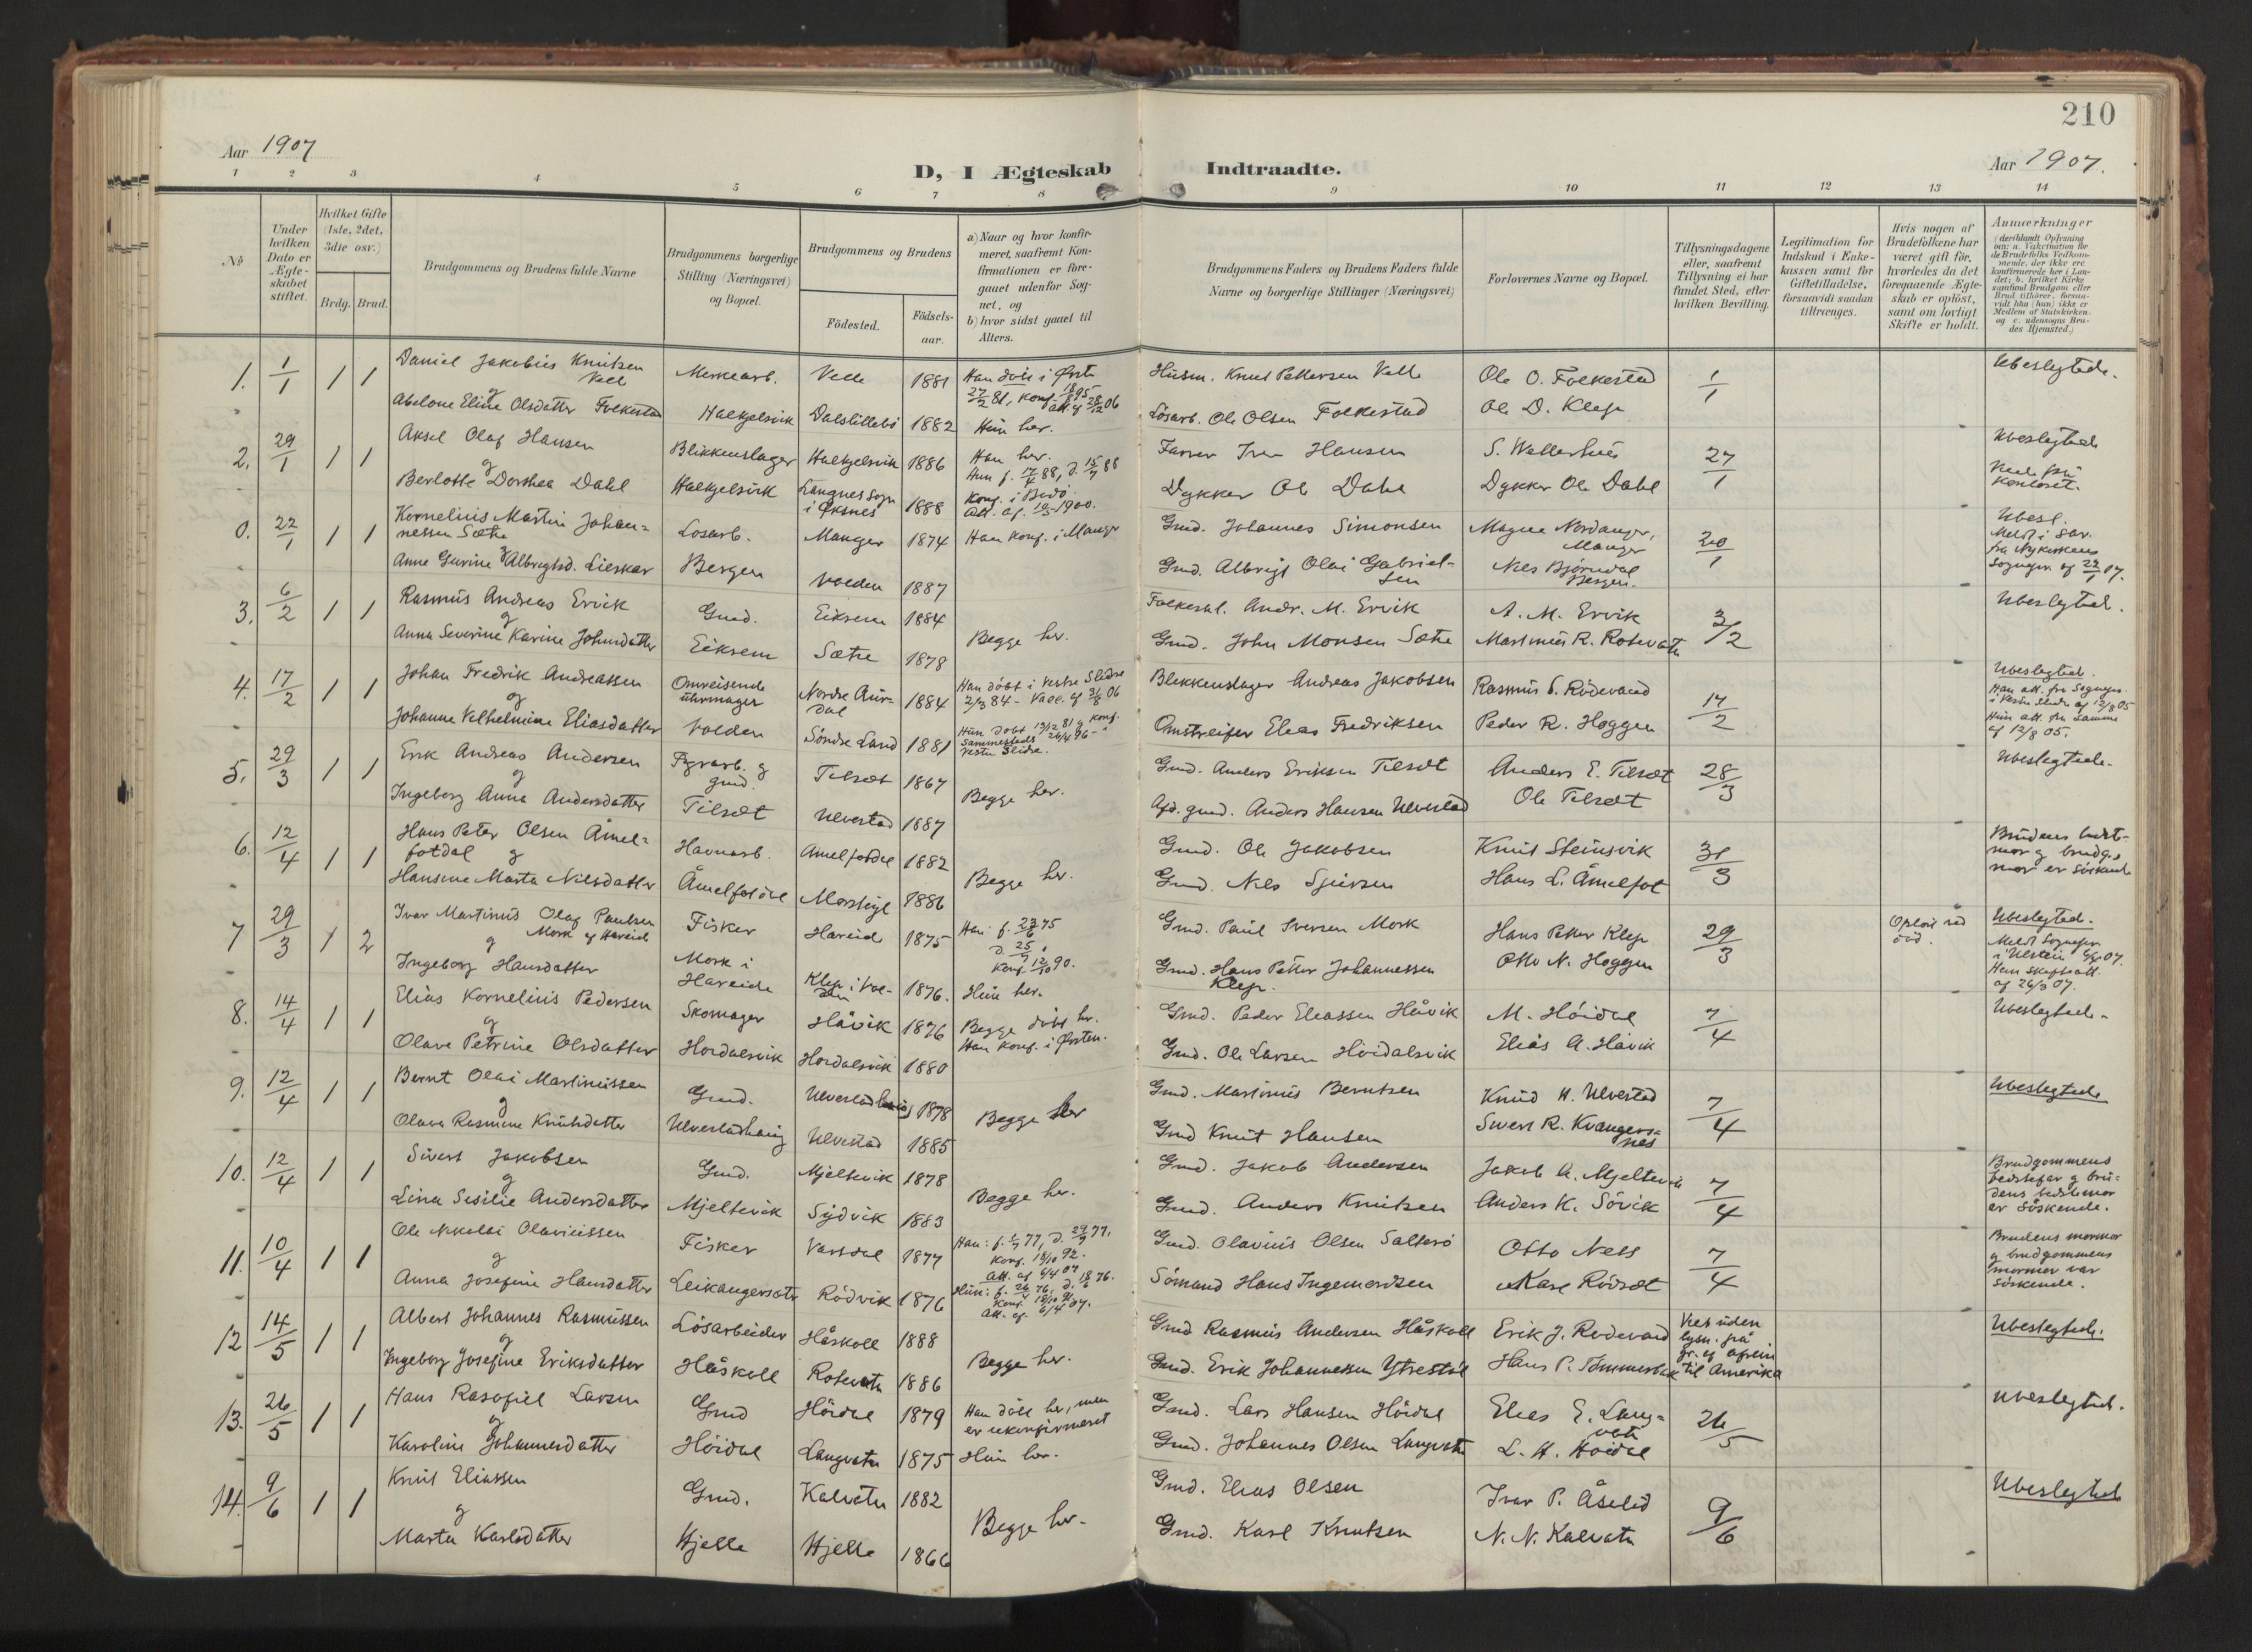 210
Aar 1907
D, I Ægteskab Indtraadte.
Aar 1907.
1 2 3 4 5 6 7 8 9 10 11 12 13 14
No
Under hvilken Dato er Ægteskabet stiftet.
Hvilket Gifte (1ste, 2det, 3die osv.)
Brdg. Brud.
Brudgommens og Brudens fulde Navne
Brudgommens borgerlige Stilling (Næringsvei) og Bopæl.
Brudgommens og Brudens
Födested.
Födselsaar.
a) Naar og hvor konfirmeret, saafremt Konfirmationen er foregaaet udenfor Sognet, og
b) hvor sidst gaaet til Alters.
Brudgommens Faders og Brudens Faders fulde Navne og borgerlige Stillinger (Næringsvei)
Forlovernes Navne og Bopæl.
Tillysningsdagene eller, saafremt Tillysning ei har fundet Sted, efter hvilken Bevilling.
Legitimation for Indskud i Enkekassen samt for Giftetilladelse, forsaavidt saadan tiltrænges.
Hvis nogen af Brudefolkene har været gift för, hvorledes da det foregaaende Ægteskab er oplöst, samt om lovligt Skifte er holdt.
Anmærkninger
(deriblandt Oplysning om: a. Vakcination for de Brudefolks Vedkommende, der ikke ere konfirmerede her i Landet; b. hvilket Kirkesamfund Brudgom eller Brud tilhörer, forsaavidt han (hun) ikke er Medlem af Statskirken. og c. udensogns Brudes Hjemsted.)
1. 1/1 1 1 Daniel Jakobius Knutsen Velle Merkearb. Velle 1881 Han døbt i Ørsta Husm. Knut Pettersen Velle Ole O. Folkestad 1/1 Ubeslegtede.
27/2 81, konf.
og
Abelone Eline Olsdatter Folkestad Halkjelsvik Dalstillebø 1882 Hun her. Løsarb. Ole Olsen Folkestad Ole D. Klep
2. 29/1 1 1 Aksel Olaf Hansen Blikkenslager Halkjelsvik 1886 Han her. Farver Iver Hansen S. Wellerhus 27/1 Ubeslegtede
og
Berlotte Dorthea Dahl Halkjelsvik Langnes Sogn i Øksnes 1888 Konf. i Bodø. Att. af 10/5 1900. Dykker Ole Dahl Dykker Ole Dahl
kontoret.
0. 22/1 1 1 Kornelius Martin Johannessen Sætre Losarb. Manger 1874 Han konf. i Manger Gmd. Johannes Simonsen Magne Nordanger, Manger 20/1 Ubesl.
og
Anne Gurine Albrigtsd. Lieskar Bergen Volden 1887 Gmd. Albrigt Olai Gabrielsen Nils Bjørndal Bergen.
fra Nykirkens Sognepr. af 22/1 07.
3. 6/2 1 1 Rasmus Andreas Ervik Gmd. Eiksem 1884 Begge her. Folkeskl. Andr. M. Ervik A. M. Ervik 3/2 Ubeslegted.
og
Anna Severine Karine Johnsdatter Eiksem Sætre 1878 Gmd. John Monsen Sætre Martinus R. Rotevatn
4. 17/2 1 1 Johan Fredrik Andreassen Omreisende uhrmager Nordre Aurdal 1884 Han döbt i Vestre Slidre 2/3 84 - Vacc. af 31/8 06 Blekkenslager Andreas Jakobsen Rasmus S. Rödevand 17/2 Ubeslegted.
og
Johanne Vilhelmine Eliasdatter Volden Söndre Land 1881 Hun döbt 19/12 81 og konf. sammesteds 26/4 96 - i Vestre Slidre. Omstreifer Elias Fredriksen Peder R. Hoggen
Han att. fra Sognepr. i Vestre Slidre af 12/8 05
Hun att. fra samme af 12/8 05.
5. 29/3 1 1 Erik Andreas Andersen Fyrarb. og gmd. Tilsæt 1867 Begge her. Gmd. Anders Eriksen Tilsæt Anders E. Tilsæt 28/3 Ubeslegtede.
og
Ingeborg Anna Andersdatter Tilsæt Ulvestad 1887 Afd. gmd. Anders Hansen Ulvestad Ole Tilsæt
6. 12/4 1 1 Hans Peter Olsen Åmelfotdal Havnarb. Åmelfotdal 1882 Begge her. Gmd. Ole Jakobsen Knut Steinsvik 31/3 Brudens bestmor og brudg.s mor er söskende
og
Hansine Marta Nilsdatter Åmelfotdal 1886 Gmd. Nils Sjursen Hans L. Åmelfot
7 29/3 1 2 Ivar Martinus Olaf Paulsen Mork af Hareid Fisker Hareid 1875 Han: f. 23/6 75 d. 25/7 Konf. 12/10 90. Gmd. Paul Iversen Mork Hans Petter Klep 29/3 Oplöst ved död. Ubeslegted.
og
Ingeborg Hansdatter Mork i Hareide Klep i Volden 1876. Hun her. Gmd. Hans Petter Johannessen Klep. Otto N. Hoggen
Meldt Sognepr. i Ulstein 6/4 07.
Hun skifteatt. af 26/3 07.
8. 14/4 1 1 Elias Kornelius Pedersen Skomager Håvik 1876 Begge döbt her. Han konf. i Ørsten. Gmd. Peder Eliassen Håvik M. Höidal 7/4 Ubeslegtede.
og
Olave Petrine Olsdatter Hordalsvik Hordalsvik 1880 Gmd. Ole Larsen Höidalsvik Elias A. Håvik
9. 12/4 1 1 Bernt Olai Martinussen Gmd. Ulvestadhaug 1878 Begge her Gmd. Martinus Berntsen Knud H. Ulvestad 7/4 Ubeslegtede
og
Olava Rasmine Knutsdatter Ulvestadhaug Ulvestad 1885 Gmd Knut Hansen Sivert R. Kvangersnes
10. 12/4 1 1 Sivert Jakobsen Gmd. Mjeltevik 1878 Begge her. Gmd. Jakob Andersen Jakob A. Mjeltevik 7/4 Brudgommens bedstefar og brudens bedstemor er Söskende.
og
Lina Sesilie Andersdatter Mjeltevik Sydvik 1883 Gmd. Anders Knutsen Anders K. Sövik
11. 10/4 1 1 Ole Nikolai Olavussen Fisker Vartdal 1877 Konf. 18/10 92. Att. af 6/4 07 Gmd. Olavius Olsen Salterö Otto Ness 7/4 Brudens mormor og brudgommens mormor var söskende.
og
Anna Josefine Hansdatter Leikangersætr Rödvik 1876 Att. af 6/4 07. Sömand Hans Ingemordsen Karl Rödsæt
12 14/5 1 1 Albert Johannes Rasmussen Lösarbeider Håskoll 1888 Begge her. Gmd Rasmus Andersen Håskoll Erik J. Rodevand Viet uden lysn. på gr. af afreise til Amerika Ubeslegtede.
og
Ingeborg Josefine Eriksdatter Håskoll Rotevatn 1886 Gmd. Erik Johannessen Ytrestöl Hans P. Tömmerbakk
13. 26/5 1 1 Hans Rasofiel Larsen Gmd Höidal 1879 Han döbt her, men er ukonfirmeret Gmd. Lars Hansen Höidal Elias E. Langvatn 26/5 Ubeslegted.
og
Karoline Johannesdatter Höidal Langvatn 1875 Hun her. Gmd. Johannes Olsen Langvatn L. H. Höidal
14. 9/6 1 1 Knut Eliassen Gmd. Kalvatn 1882 Begge her. Gmd. Elias Olsen Ivar P. Åselid 9/6 Ubeslegted
og
Marta Karlsdatter Hjelle Hjelle 1866 Gmd. Karl Knutsen N. N. Kalvatn